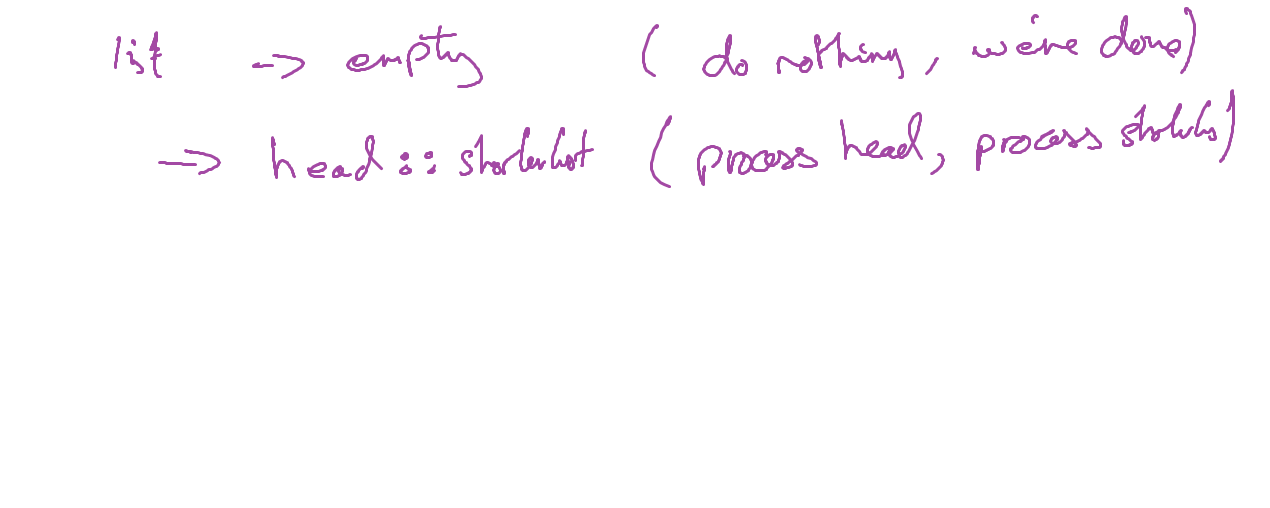 list -> empty ( do nothing, we're done)
-> head :: shorterlist ( process head, process )